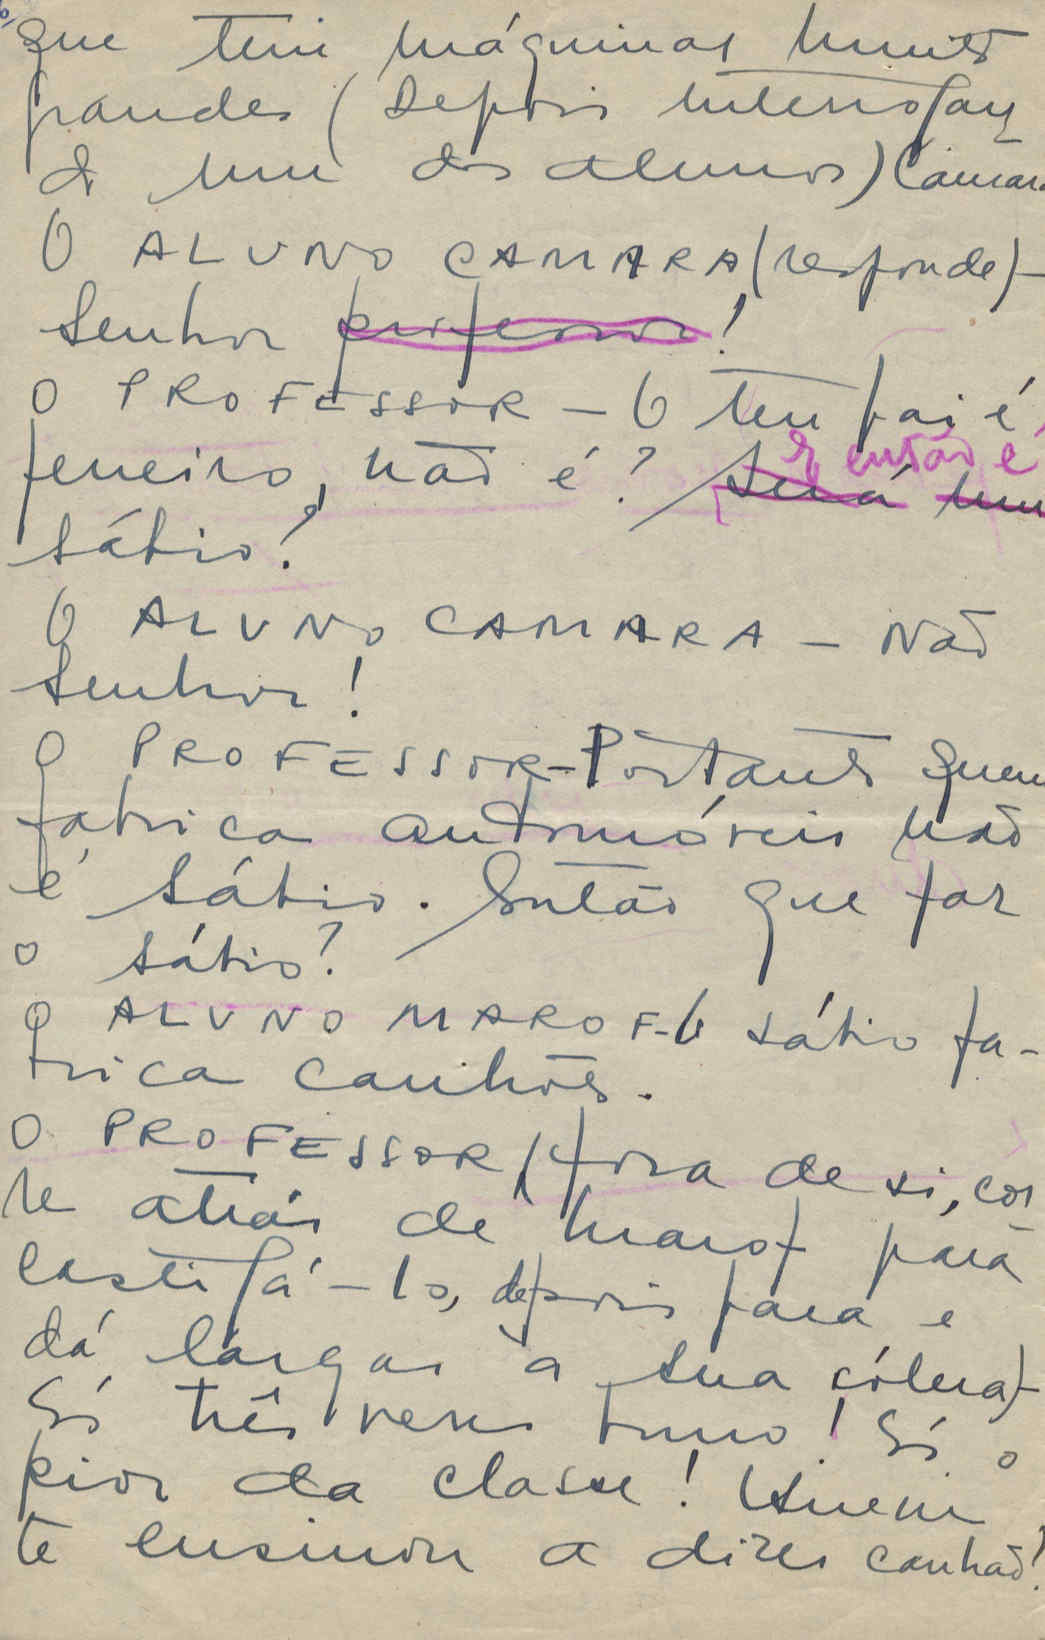 que tem máquinas muito
grandes (Depois interrogan
do um dos alunos) Camara
O ALUNO CAMARA (responde) -
Senhor professor!
O PROFESSOR - O teu pai é
ferreiro, não é? Será um
E então é
sábio?
O ALUNO CAMARA - Não
Senhor!
O PROFESSOR - Portanto quem
fabrica automóveis não
é sábio. Então que faz
o sábio?
O ALUNO MAROF - O sábio fa-
brica canhões.
O PROFESSOR (fora de si, cor
re atrás de Marof para
castigá-lo, depois para e
dá largas a sua cólera) -
És três vezes burro! És o
pior da classe! Quem
te ensinou a dizer canhão!